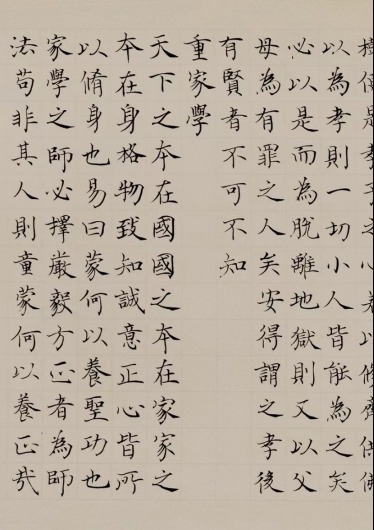 是孝子之心若以修齋供佛
以為孝則一切小人皆能為之矣
必以是而為脫離地獄則又以父
母為有罪之人矣安得謂之孝後
有賢者不可不知
重家學
天下之本在國國之本在家家之
本在身格物致知誠意正心皆所
以脩身也易曰蒙何以養聖功也
家學之師必擇嚴毅方正者為師
法苟非其人則童蒙何以養正哉